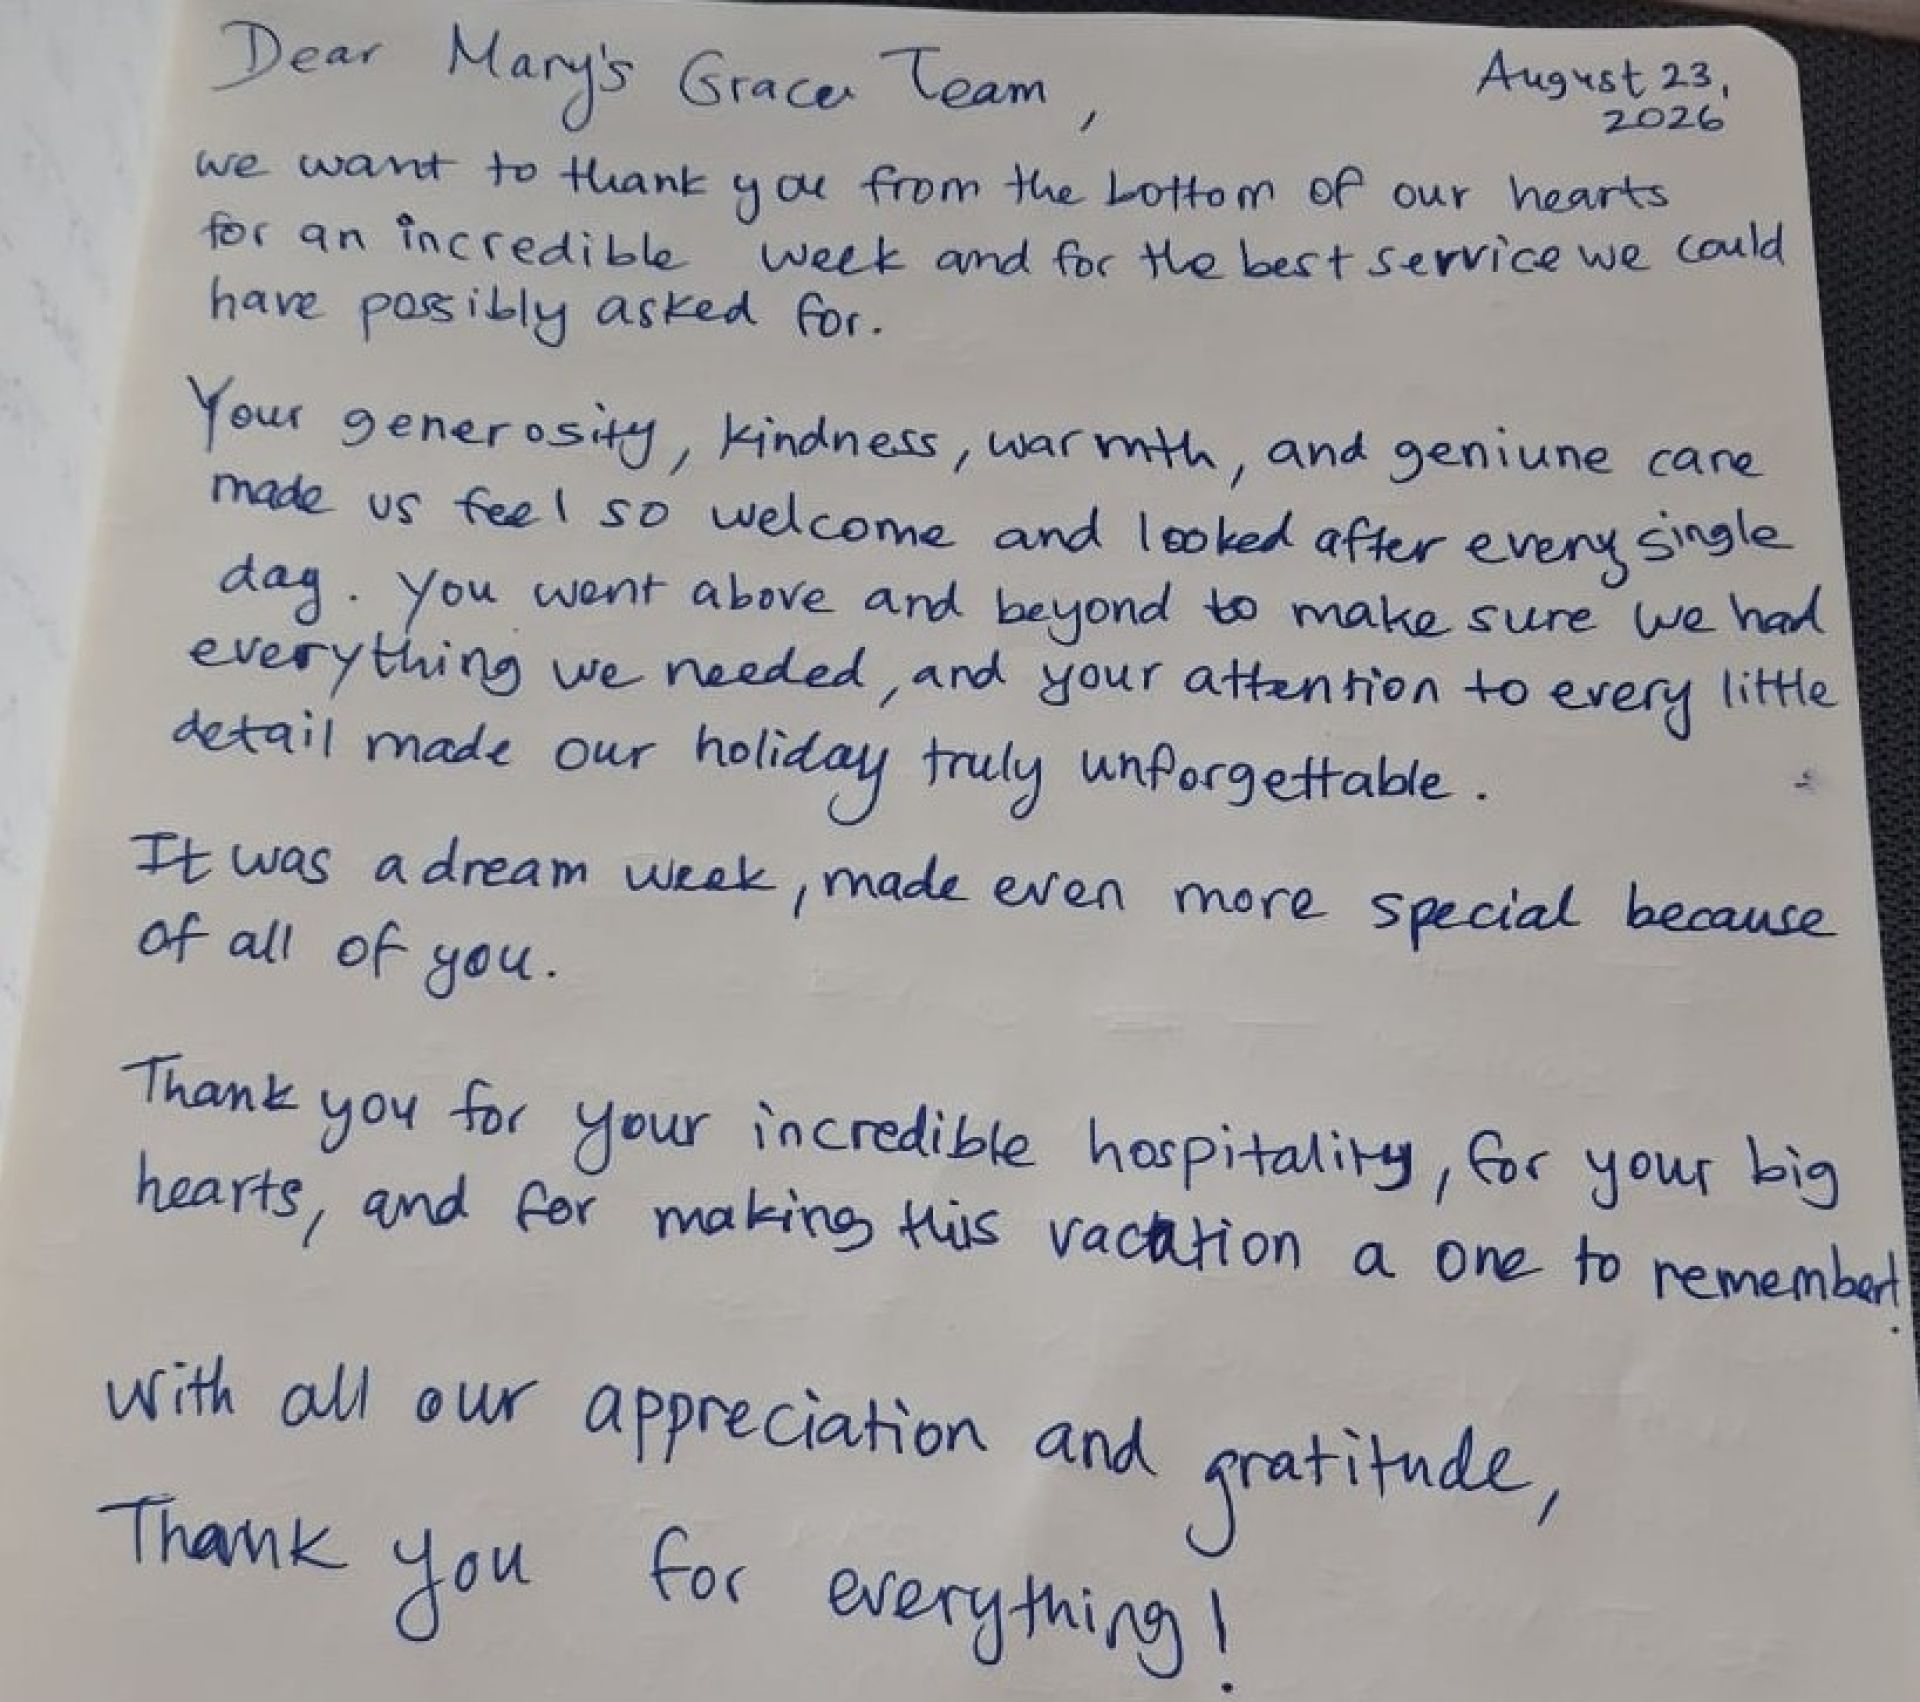 Dear Mary's Grace Team,
August 23,
2026
we want to thank you from the bottom of our hearts
for an incredible week and for the best service we could
have possibly asked for.
Your generosity, kindness, warmth, and geniune care
made us feel so welcome and looked after every single
day. You went above and beyond to make sure we had
everything we needed, and your attention to every little
detail made our holiday truly unforgettable.
It was a dream week, made even more special because
of all of you.
Thank you for your incredible hospitality, for your big
hearts, and for making this vacation a one to remember!
with all our appreciation and gratitude,
Thank you for everything!